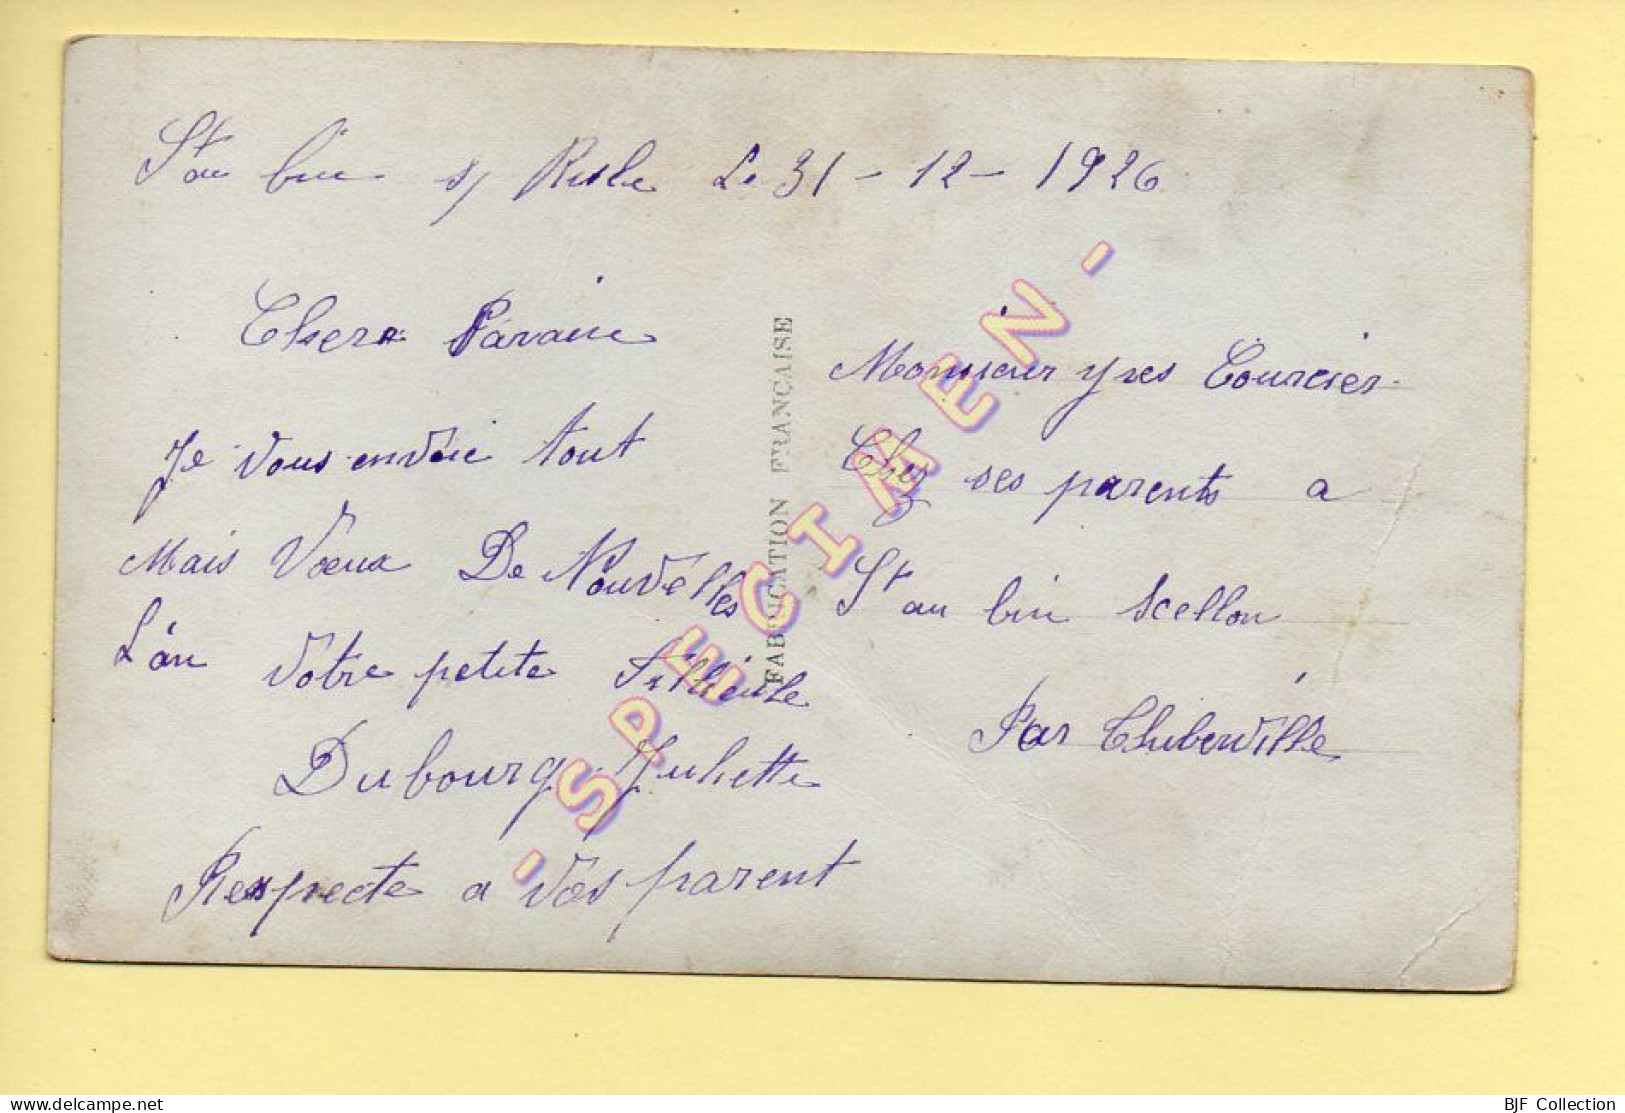 St au bin s/ Risle Le 31 - 12 - 1926
Chere Paraine
Je vous envoie tout
Mais Vœux De Nouvelles
L'an votre petite Fillieule
Dubourg Juliette
Respecte a vos parent
FABRICATION FRANÇAISE
Monsieur Yves Courcier
Chez ses parents a
St au bin Scellon
Par Thiberville
- SPECIMEN -
BJF Collection
https://www.delcampe.net